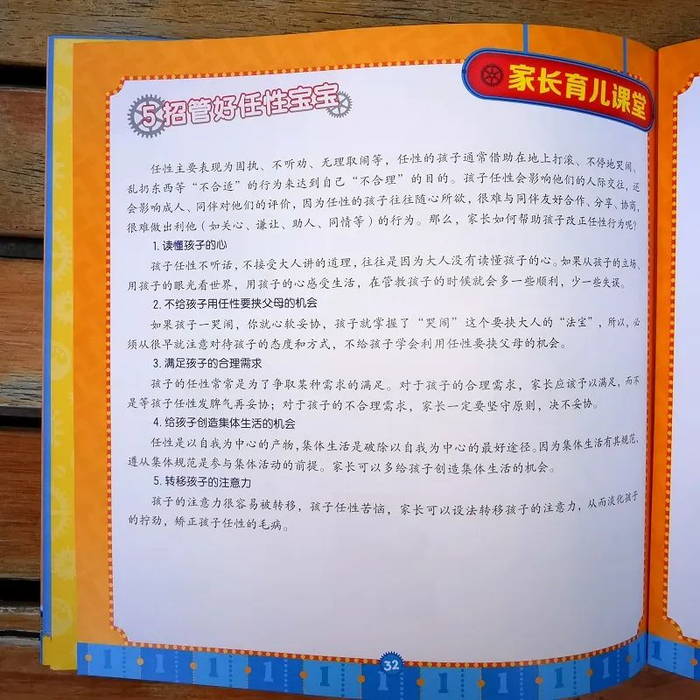 家长育儿课堂
5招管好任性宝宝
任性主要表现为固执、不听劝、无理取闹等，任性的孩子通常借助在地上打滚、不停地哭闹、
乱扔东西等“不合适”的行为来达到自己“不合理”的目的。孩子任性会影响他们的人际交往，还
会影响成人、同伴对他们的评价，因为任性的孩子往往随心所欲，很难与同伴友好合作、分享、协商，
很难做出利他（如关心、谦让、助人、同情等）的行为。那么，家长如何帮助孩子改正任性行为呢？
1. 读懂孩子的心
孩子任性不听话，不接受大人讲的道理，往往是因为大人没有读懂孩子的心。如果从孩子的立场、
用孩子的眼光看世界，用孩子的心感受生活，在管教孩子的时候就会多一些顺利，少一些失误。
2. 不给孩子用任性要挟父母的机会
如果孩子一哭闹，你就心软妥协，孩子就掌握了“哭闹”这个要挟大人的“法宝”，所以，必
须从很早就注意对待孩子的态度和方式，不给孩子学会利用任性要挟父母的机会。
3. 满足孩子的合理需求
孩子的任性常常是为了争取某种需求的满足。对于孩子的合理需求，家长应该予以满足，而不
是等孩子任性发脾气再妥协；对于孩子的不合理需求，家长一定要坚守原则，决不妥协。
4. 给孩子创造集体生活的机会
任性是以自我为中心的产物，集体生活是破除以自我为中心的最好途径。因为集体生活有其规范，
遵从集体规范是参与集体活动的前提。家长可以多给孩子创造集体生活的机会。
5. 转移孩子的注意力
孩子的注意力很容易被转移，孩子任性苦恼，家长可以设法转移孩子的注意力，从而淡化孩子
的拧劲，矫正孩子任性的毛病。
32
1 1 1 1 1 1 1